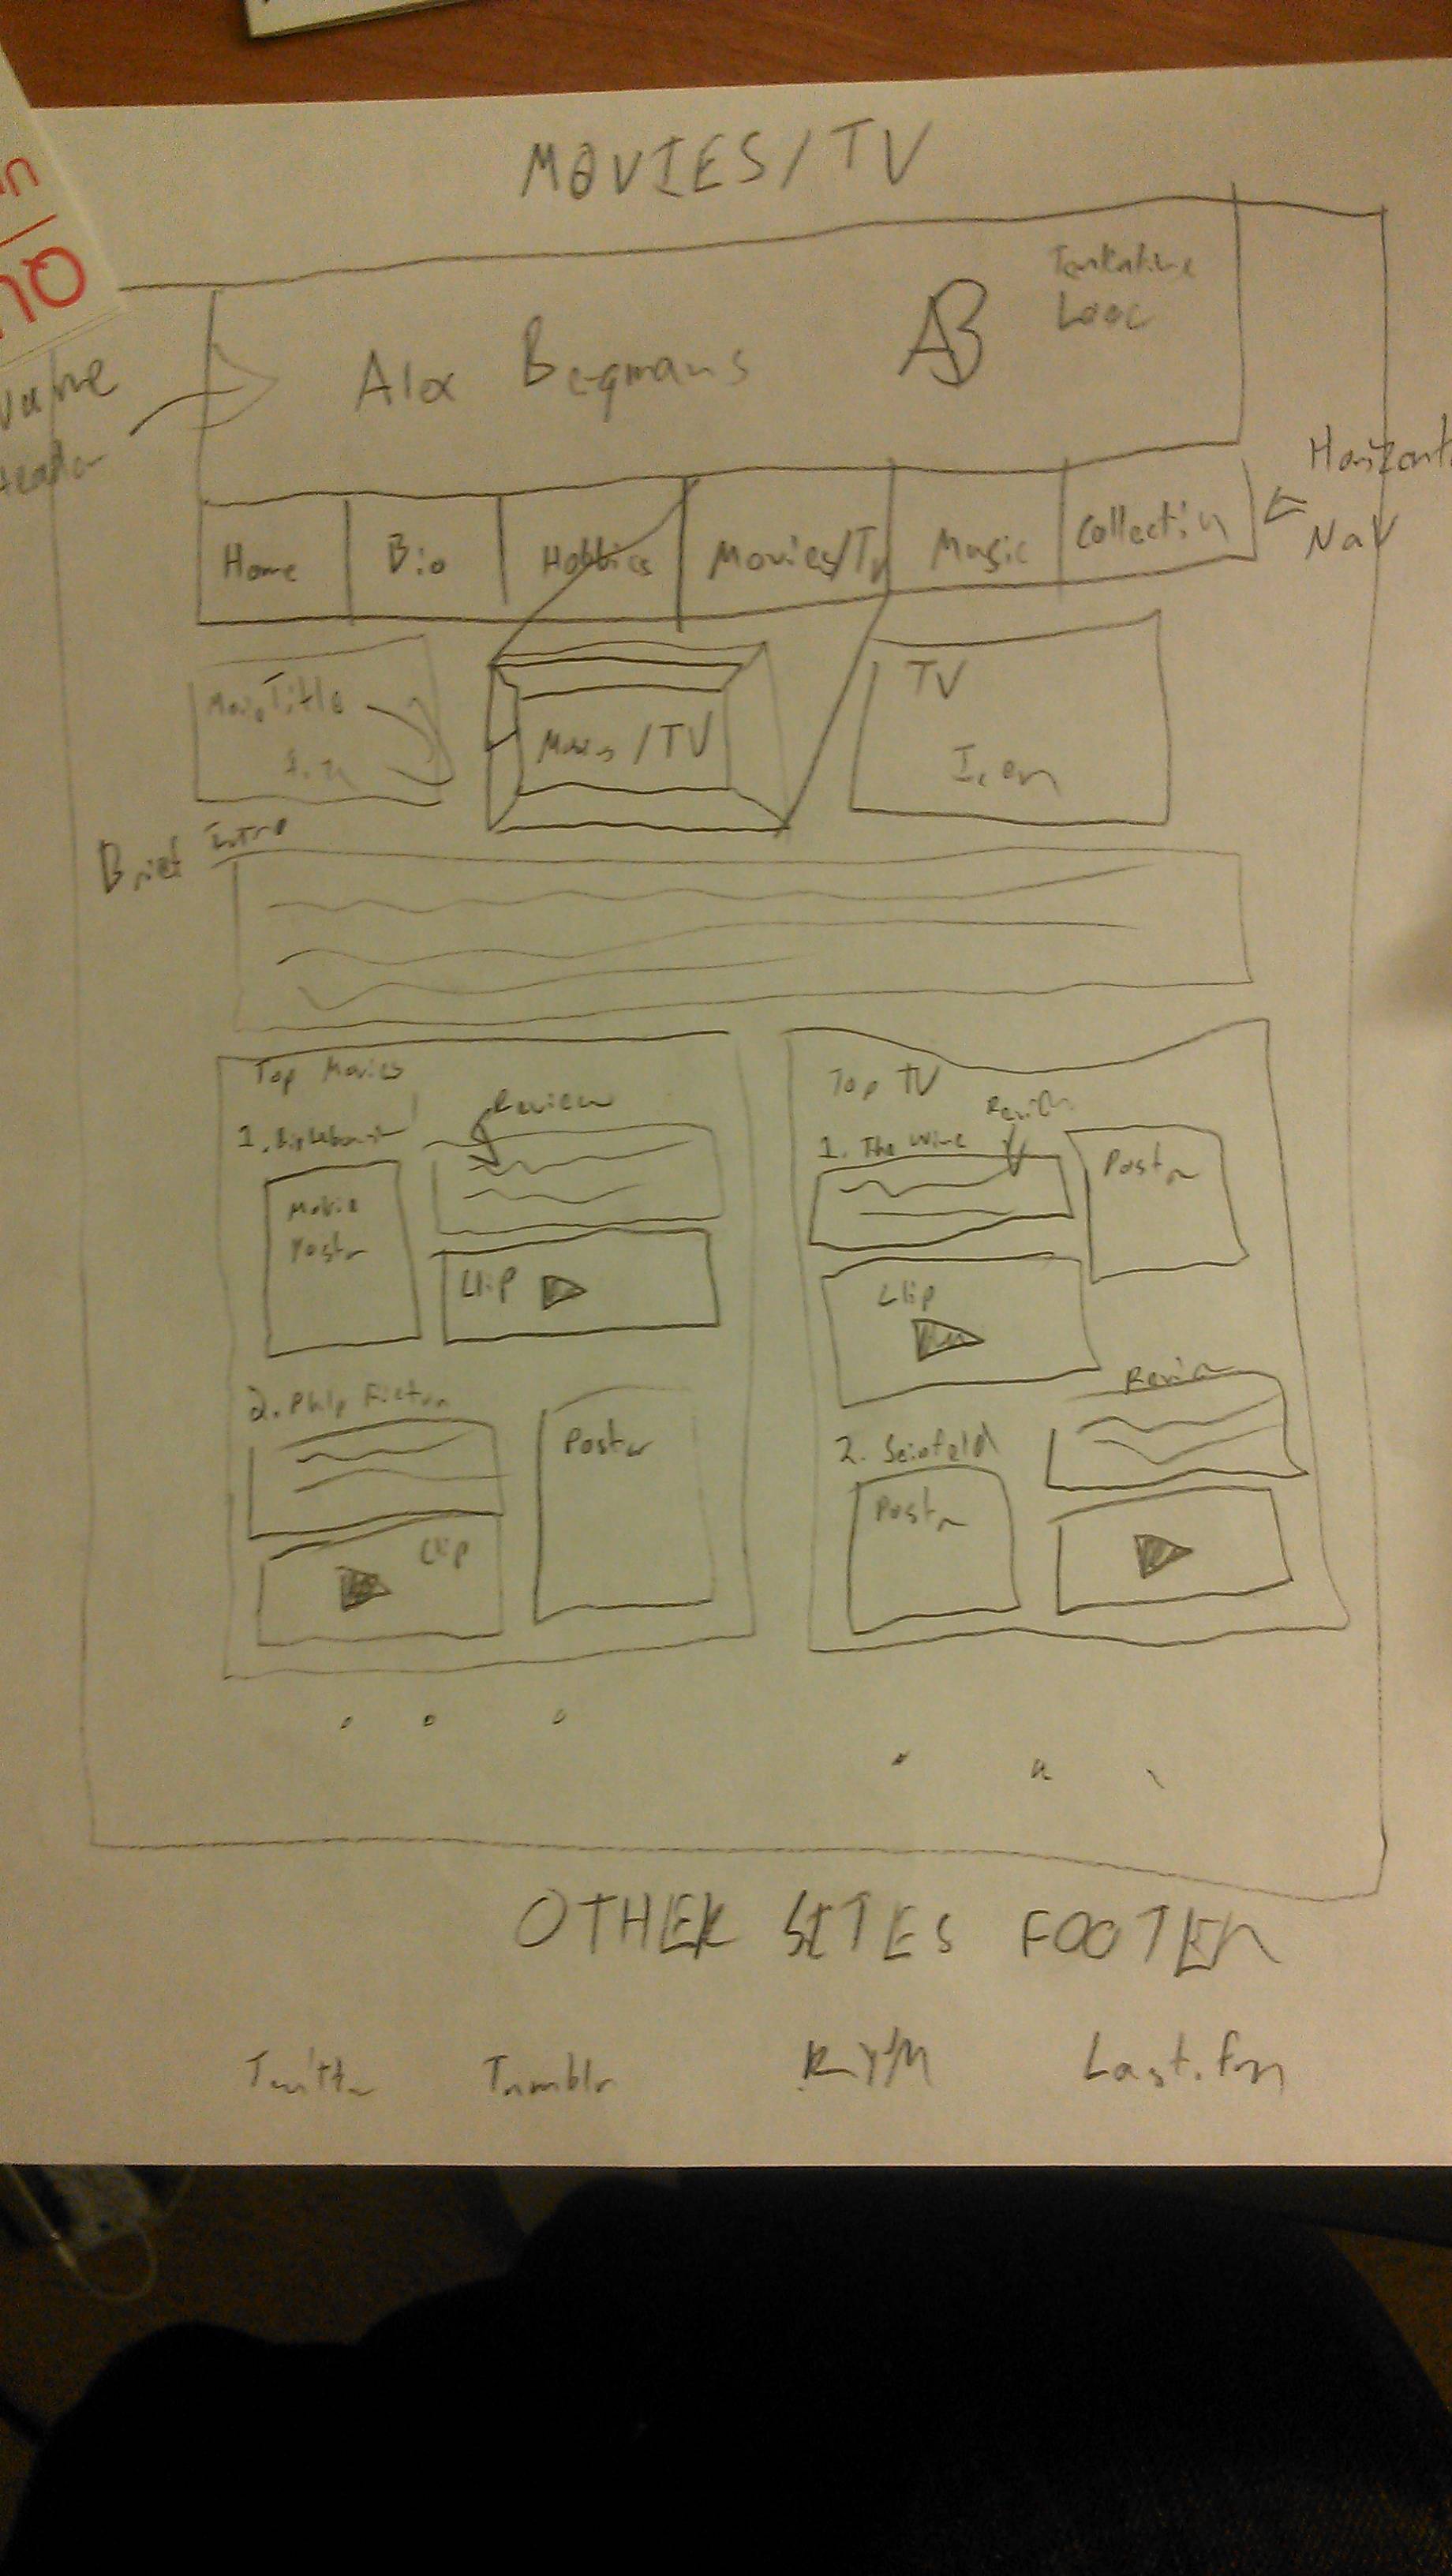 MOVIES/TV
Tentative
Logo
AB
Alex
Name
Header
Horizont
Nav
Home
Bio
Hobbies
Movies/Tv
Music
Collectin
Movie Title
Movies/TV
TV
Icon
Brief Intro
Top Movies
Review
1.
Movie
Poster
Clip
2. Phlp Fiction
Poster
Clip
Top TV
Review
1. The Wire
Poster
Clip
Review
2. Seinfeld
Poster
OTHER SITES FOOTER
Twitter
Tumblr
RYM
Last.fm